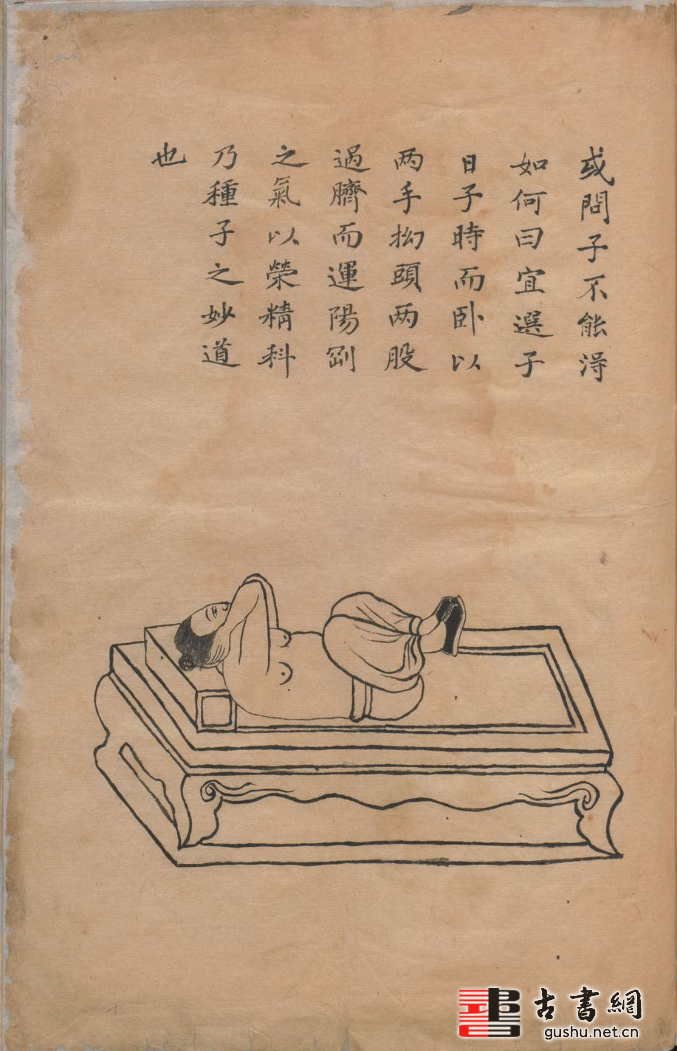 或問子不能淂
如何曰宜選子
日子時而卧以
两手抝頭两股
過臍而運陽剛
之氣以榮精科
乃種子之妙道
也
古書網
gushu.net.cn